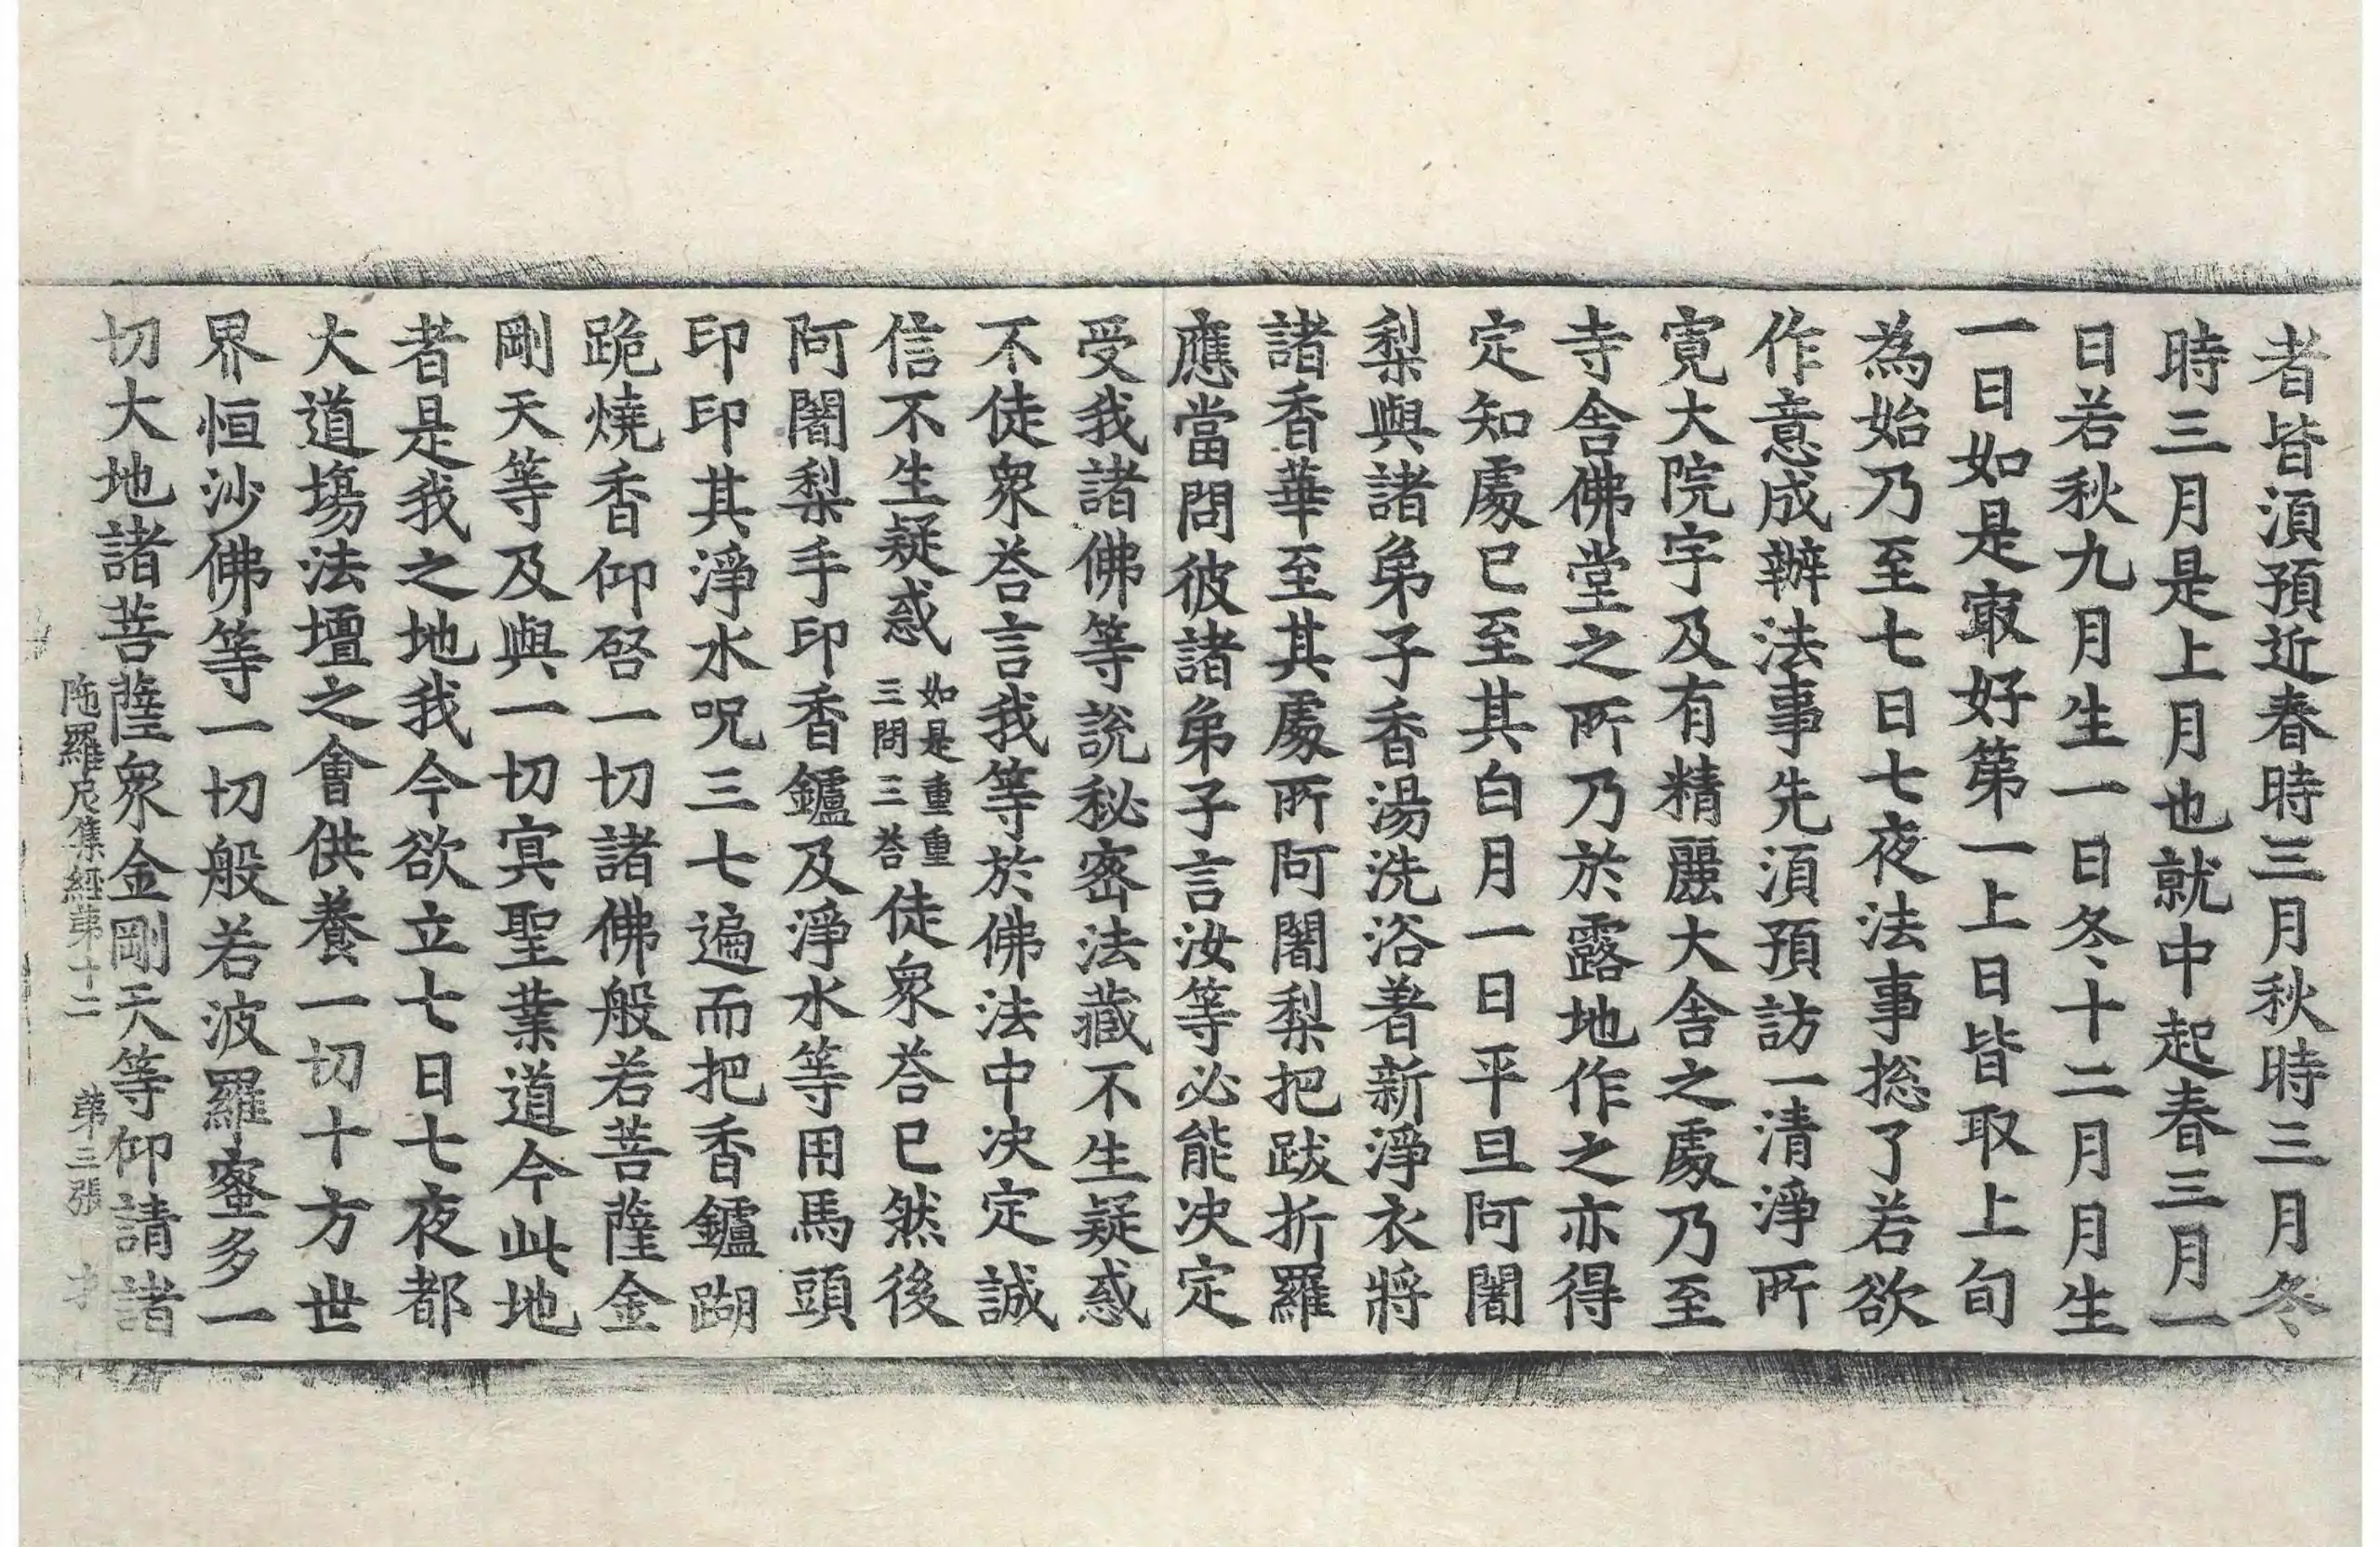 者皆湏預近春時三月秋時三月冬
時三月是上月也就中起春三月一
日若秋九月生一日冬十二月月生
一日如是㝡好第一上日皆取上旬
為始乃至七日七夜法事捴了若欲
作意成辦法事先湏預訪一清淨所
寛大院宇及有精麗大舍之處乃至
寺舍佛堂之所乃於露地作之亦得
定知處已至其白月一日平旦阿闍
梨與諸弟子香湯洗浴著新淨衣將
諸香華至其處所阿闍梨把跋折羅
應當問彼諸弟子言汝等必能決定
受我諸佛等說秘密法藏不生疑惑
不徒衆荅言我等於佛法中決定誠
信不生疑惑如是重重三問三荅徒衆荅已然後
阿闍梨手印香鑪及淨水等用馬頭
印印其淨水呪三七遍而把香鑪䠒
跪燒香仰啓一切諸佛般若菩薩金
剛天等及與一切冥聖業道今此地
者是我之地我今欲立七日七夜都
大道塲法壇之會供養一切十方世
界恒沙佛等一切般若波羅蜜多一
切大地諸菩薩衆金剛天等仰請諸
陁羅尼集經第十二 第三張 才